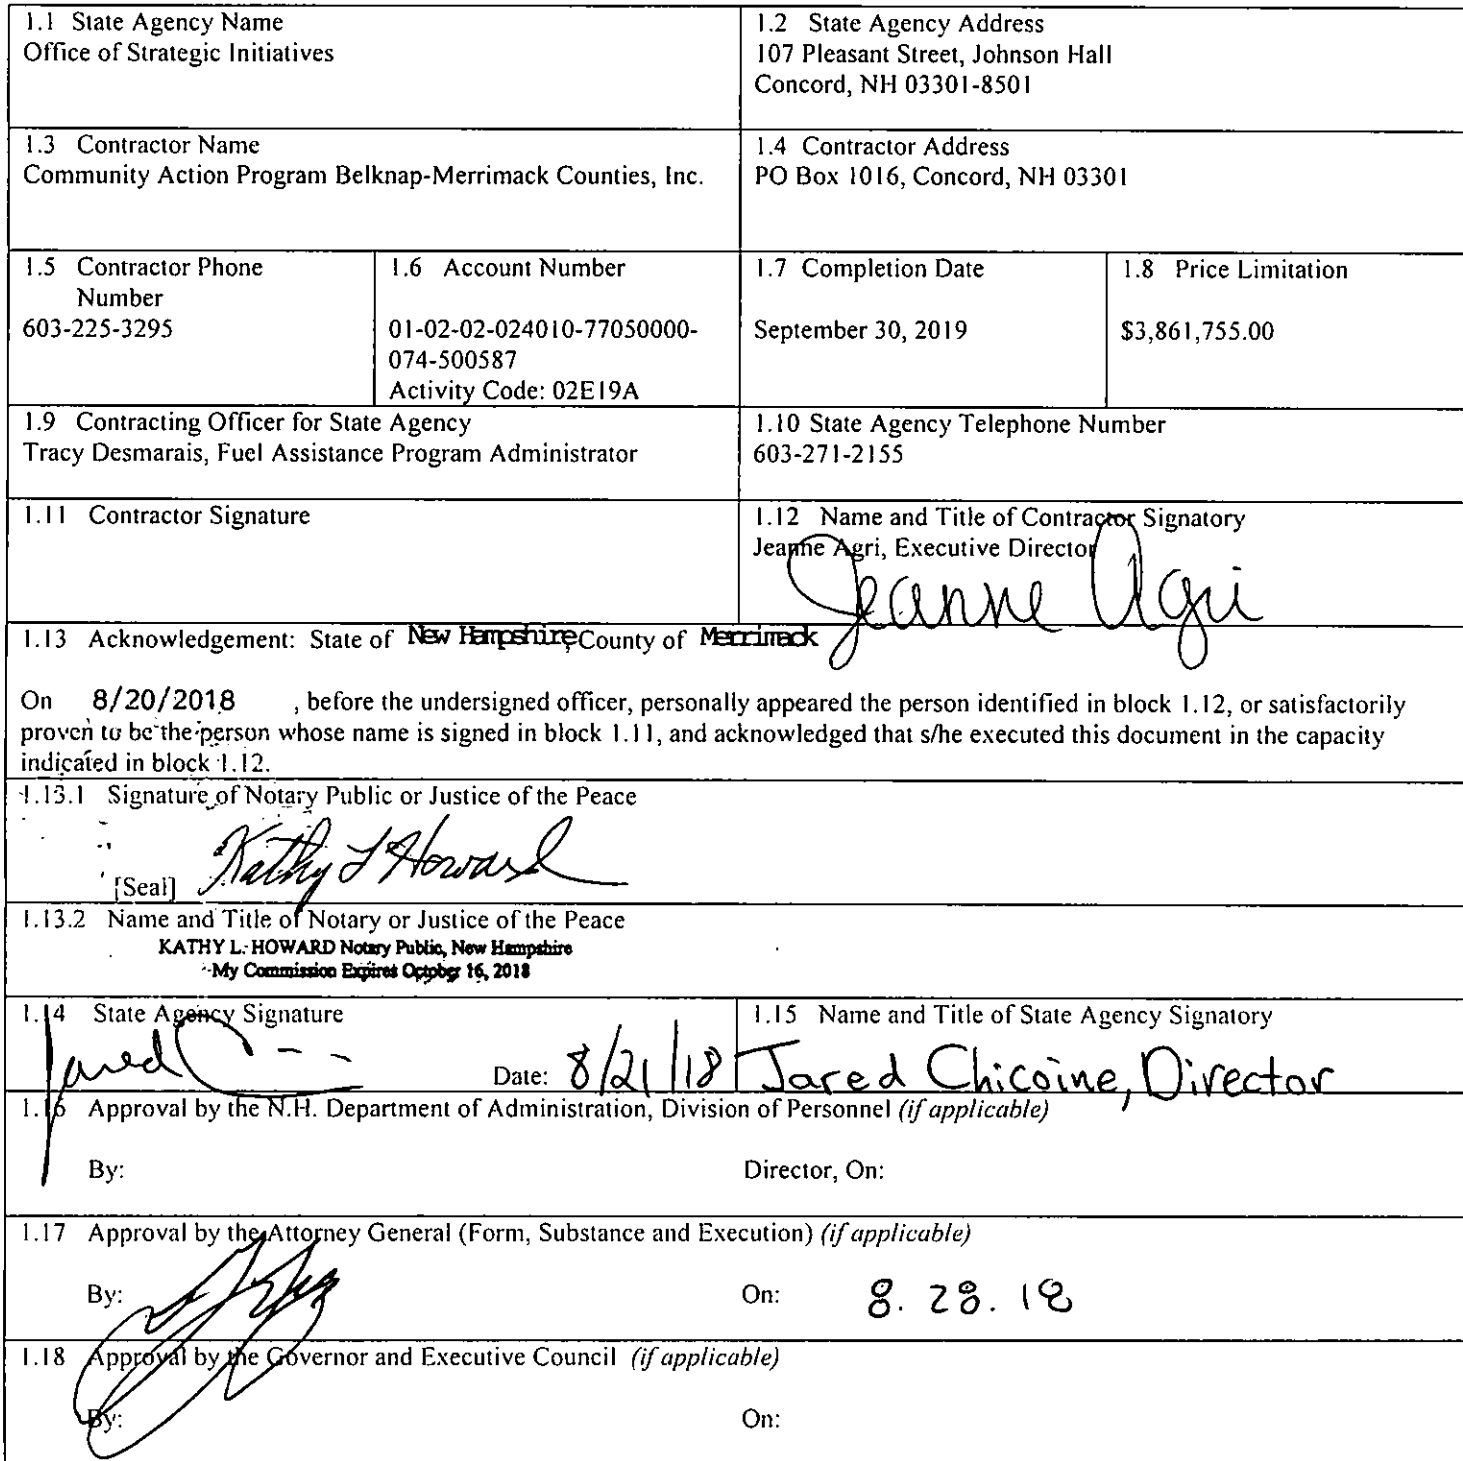 1.1 State Agency Name
Office of Strategic Initiatives
1.2 State Agency Address
107 Pleasant Street, Johnson Hall
Concord, NH 03301-8501
1.3 Contractor Name
Community Action Program Belknap-Merrimack Counties, Inc.
1.4 Contractor Address
PO Box 1016, Concord, NH 03301
1.5 Contractor Phone
Number
603-225-3295
1.6 Account Number
01-02-02-024010-77050000-
074-500587
Activity Code: 02E19A
1.7 Completion Date
September 30, 2019
1.8 Price Limitation
$3,861,755.00
1.9 Contracting Officer for State Agency
Tracy Desmarais, Fuel Assistance Program Administrator
1.10 State Agency Telephone Number
603-271-2155
1.11 Contractor Signature
1.12 Name and Title of Contractor Signatory
Jeanne Agri, Executive Director
Jeanne Agri
1.13 Acknowledgement: State of New Hampshire, County of Merrimack
On 8/20/2018 , before the undersigned officer, personally appeared the person identified in block 1.12, or satisfactorily
proven to be the person whose name is signed in block 1.11, and acknowledged that s/he executed this document in the capacity
indicated in block 1.12.
1.13.1 Signature of Notary Public or Justice of the Peace
Kathy L Howard
[Seal]
1.13.2 Name and Title of Notary or Justice of the Peace
KATHY L. HOWARD Notary Public, New Hampshire
My Commission Expires October 16, 2018
1.14 State Agency Signature
Jared
Date: 8/21/18
1.15 Name and Title of State Agency Signatory
Jared Chicoine, Director
1.16 Approval by the N.H. Department of Administration, Division of Personnel (if applicable)
By:
Director, On:
1.17 Approval by the Attorney General (Form, Substance and Execution) (if applicable)
By:
On: 8.28.18
1.18 Approval by the Governor and Executive Council (if applicable)
By:
On: